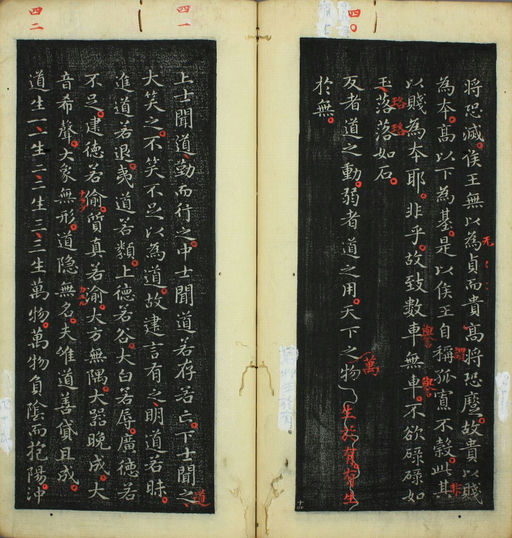 四〇
將恐滅侯王無以為貞而貴高將恐故貴以賤
无
為本高以下為基是以侯王自稱孤寡不穀此其
謂
非
以賤為本耶非乎故致數車無車不欲碌碌如
譽
譽
玉落落如石
珞珞
反者道之動弱者道之用天下之物
萬
生於有有生
於無
四一
上士聞道勤而行之中士聞道若存若亡下士聞之
道
大笑之不笑不足以為道故建言有之明道若昧
進道若退夷道若類上德若谷大白若辱廣德若
不足建德若偷質真若渝大方無隅大器晚成大
音希聲大象無形道隱無名夫唯道善貸且成
四二
道生一一生二二生三三生萬物萬物負陰而抱陽沖